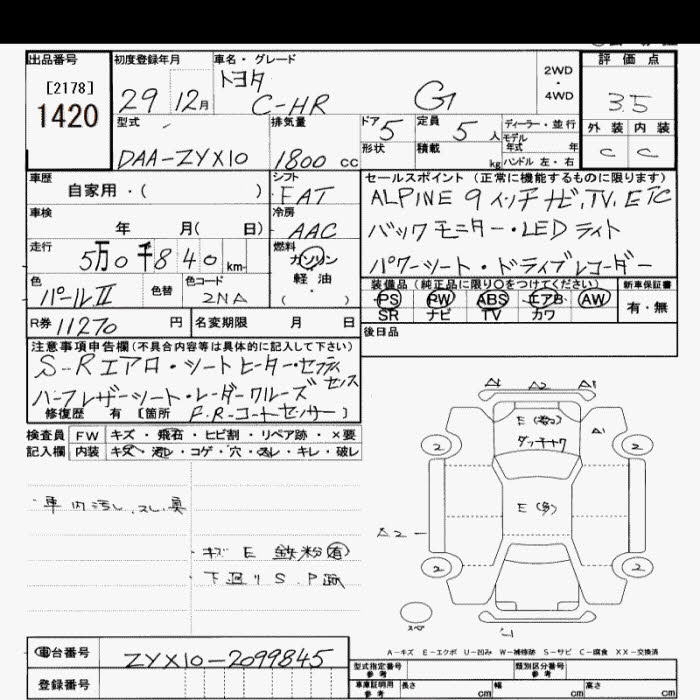 出品番号
[2178]
1420
初度登録年月
29 12月
車名・グレード
トヨタ
C-HR G
2WD
・
4WD
評価点
3.5
外装 内装
C C
型式
DAA-ZYX10
排気量
1800 cc
ドア 5
定員 5 人
ディーラー・並行
モデル
年式 年
形状
積載 kg
ハンドル 左・右
車歴
自家用・( )
シフト
FAT
車検
年 月( 日)
冷房
AAC
走行
5万0千840 km
燃料
ガソリン
軽油
( ・ )
色
パールⅡ
色替
色コード
2NA
R券 11270 円
名変期限 月 日
セールスポイント(正常に機能するものに限ります)
ALPINE 9インチナビ,TV,ETC
バックモニター・LEDライト
パワーシート・ドライブレコーダー
装備品(純正品に限り○をつけてください)
PS PW ABS エアB AW
SR ナビ TV カワ
新車保証書
有・無
後日品
注意事項申告欄(不具合内容等は具体的に記入して下さい)
S-Rエアロ・シートヒーター・セフティ
センス
ハーフレザーシート・レーダークルーズ
修復歴 有 [箇所 F.R-コーナーセンサー]
検査員 FW キズ・飛石・ヒビ割・リペア跡・×要
記入欄 内装 キズ・汚レ・コゲ・穴・スレ・キレ・破レ
・車内汚レ,スレ,臭
・キズ E 鉄粉 有
・下廻り S.P跡
A1 A2 A1
E
A1
2 2
E(多)
A2
2 2
スペア
A-キズ E-エクボ U-凹み W-補修跡 S-サビ C-腐食 XX-交換済
車台番号 ZYX10-2099845
登録番号
型式指定番号
参考
類別区分番号
参考
車庫証明用
参考
長さ cm 幅 cm 高さ cm